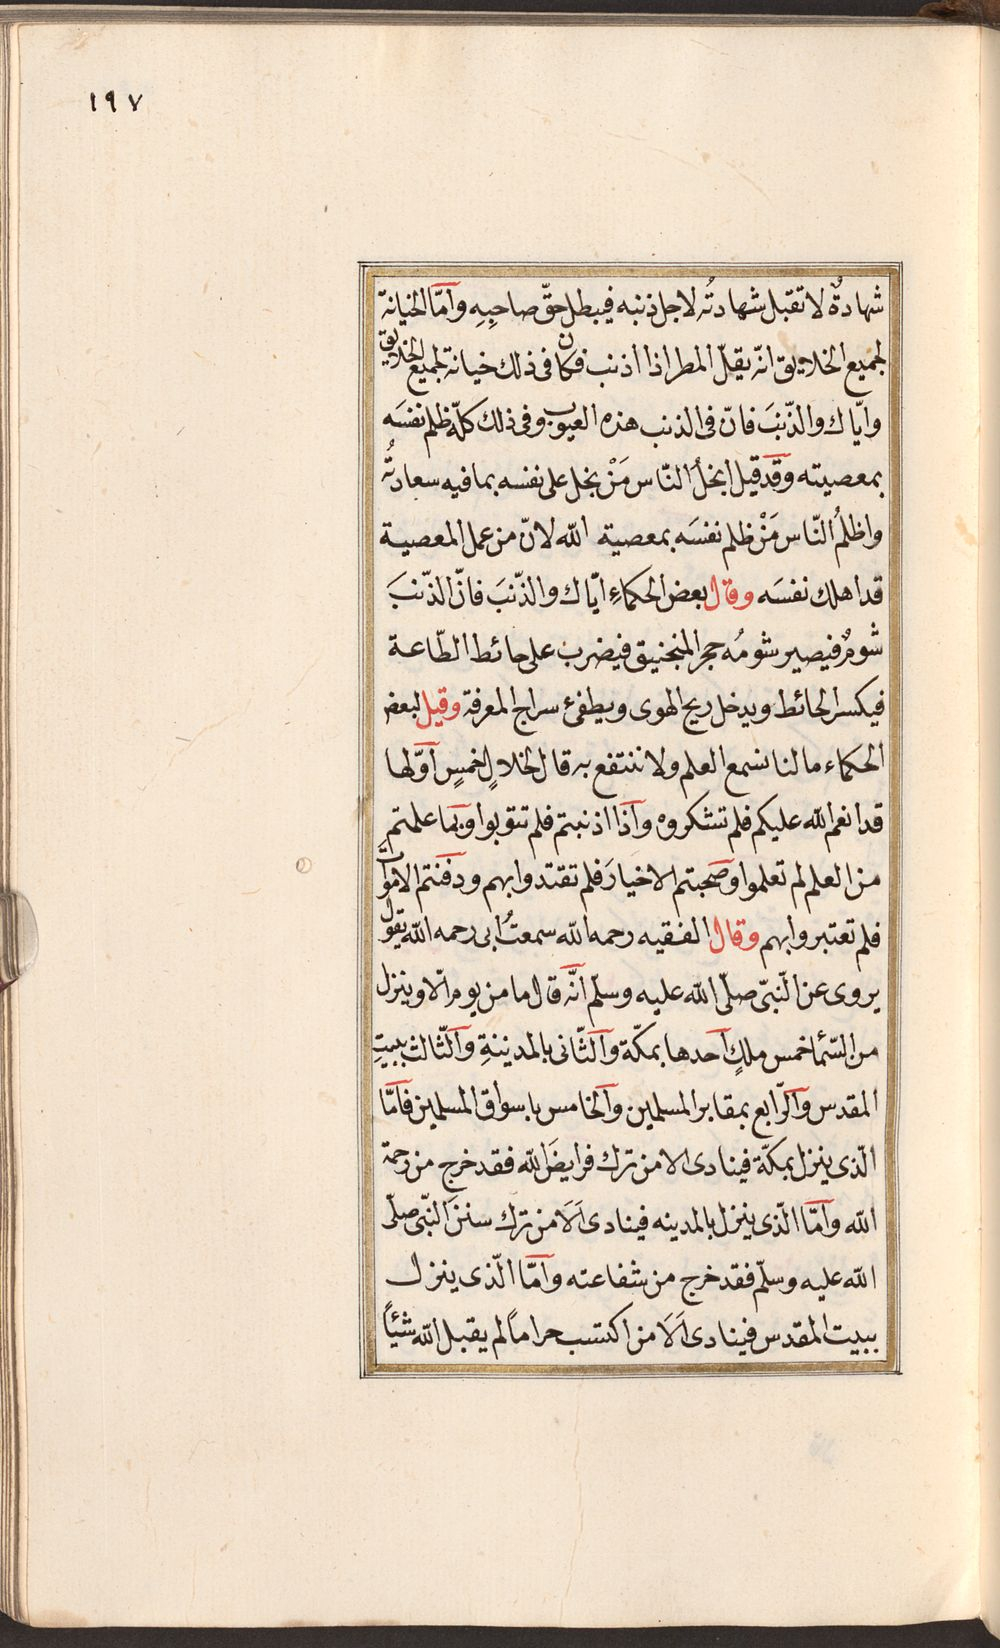 ١٩٧
شهادةٌ لا تقبل شهادتُه لاجل ذنبه فيبطل حقّ صاحِبِهِ وامّا الخيانة
لجميع الخلايق انّه يقلّ المطر اذا اذنب فكان فى ذلك خيانة لجميع الخلايق
وايّاك والذّنبَ فانّ فى الذنب هذه العيوب وفى ذلك كلّه ظلم نفسَه
بمعصيته وقد قيل ابخلُ النّاس مَنْ بخل على نفسه بما فيه سعادتُه
واظلمُ النّاس مَنْ ظلم نفسَه بمعصية الله لانّ من عمل المعصية
قد اهلك نفسَه وقال بعض الحكماءِ ايّاك والذّنبَ فانّ الذّنبَ
شومٌ فيصير شومُه حجر المنجنيق فيضرب على حائط الطّاعة
فيكسر الحائط ويدخل ريح الهوى ويطفئ سراج المعرفة وقيل لبعض
الحكماء ما لنا نسمع العلم ولا ننتفع به قال لخلالٍ خمسٍ اوّلها
قد انعم الله عليكم فلم تشكروه واذا اذنبتم فلم تتوبوا وبما علمتم
من العلم لم تعلموا وصحبتم الاخيارَ فلم تقتدوا بهم ودفنتم الاموات
فلم تعتبروا بهم وقال الفقيه رحمه الله سمعتُ ابى رحمه الله يقول
يروى عن النّبىّ صلّى الله عليه وسلّم انّه قال ما من يوم الّا وينزل
من السّما خمس ملكٍ احدها بمكّة والثّانى بالمدينةِ والثّالث ببيتِ
المقدس والرّابع بمقابر المسلمين والخامس باسواق المسلمين فامّا
الّذى ينزل بمكّة فينادى الا من ترك فرايضَ الله فقد خرج من رحمة
الله وامّا الّذى ينزل بالمدينه فينادى اَلَا من ترك سننَ النّبىّ صلّى
الله عليه وسلّم فقد خرج من شفاعته وامّا الّذى ينزل
ببيت المقدس فينادى اَلَا من اكتسب حراماً لم يقبل الله شئياً